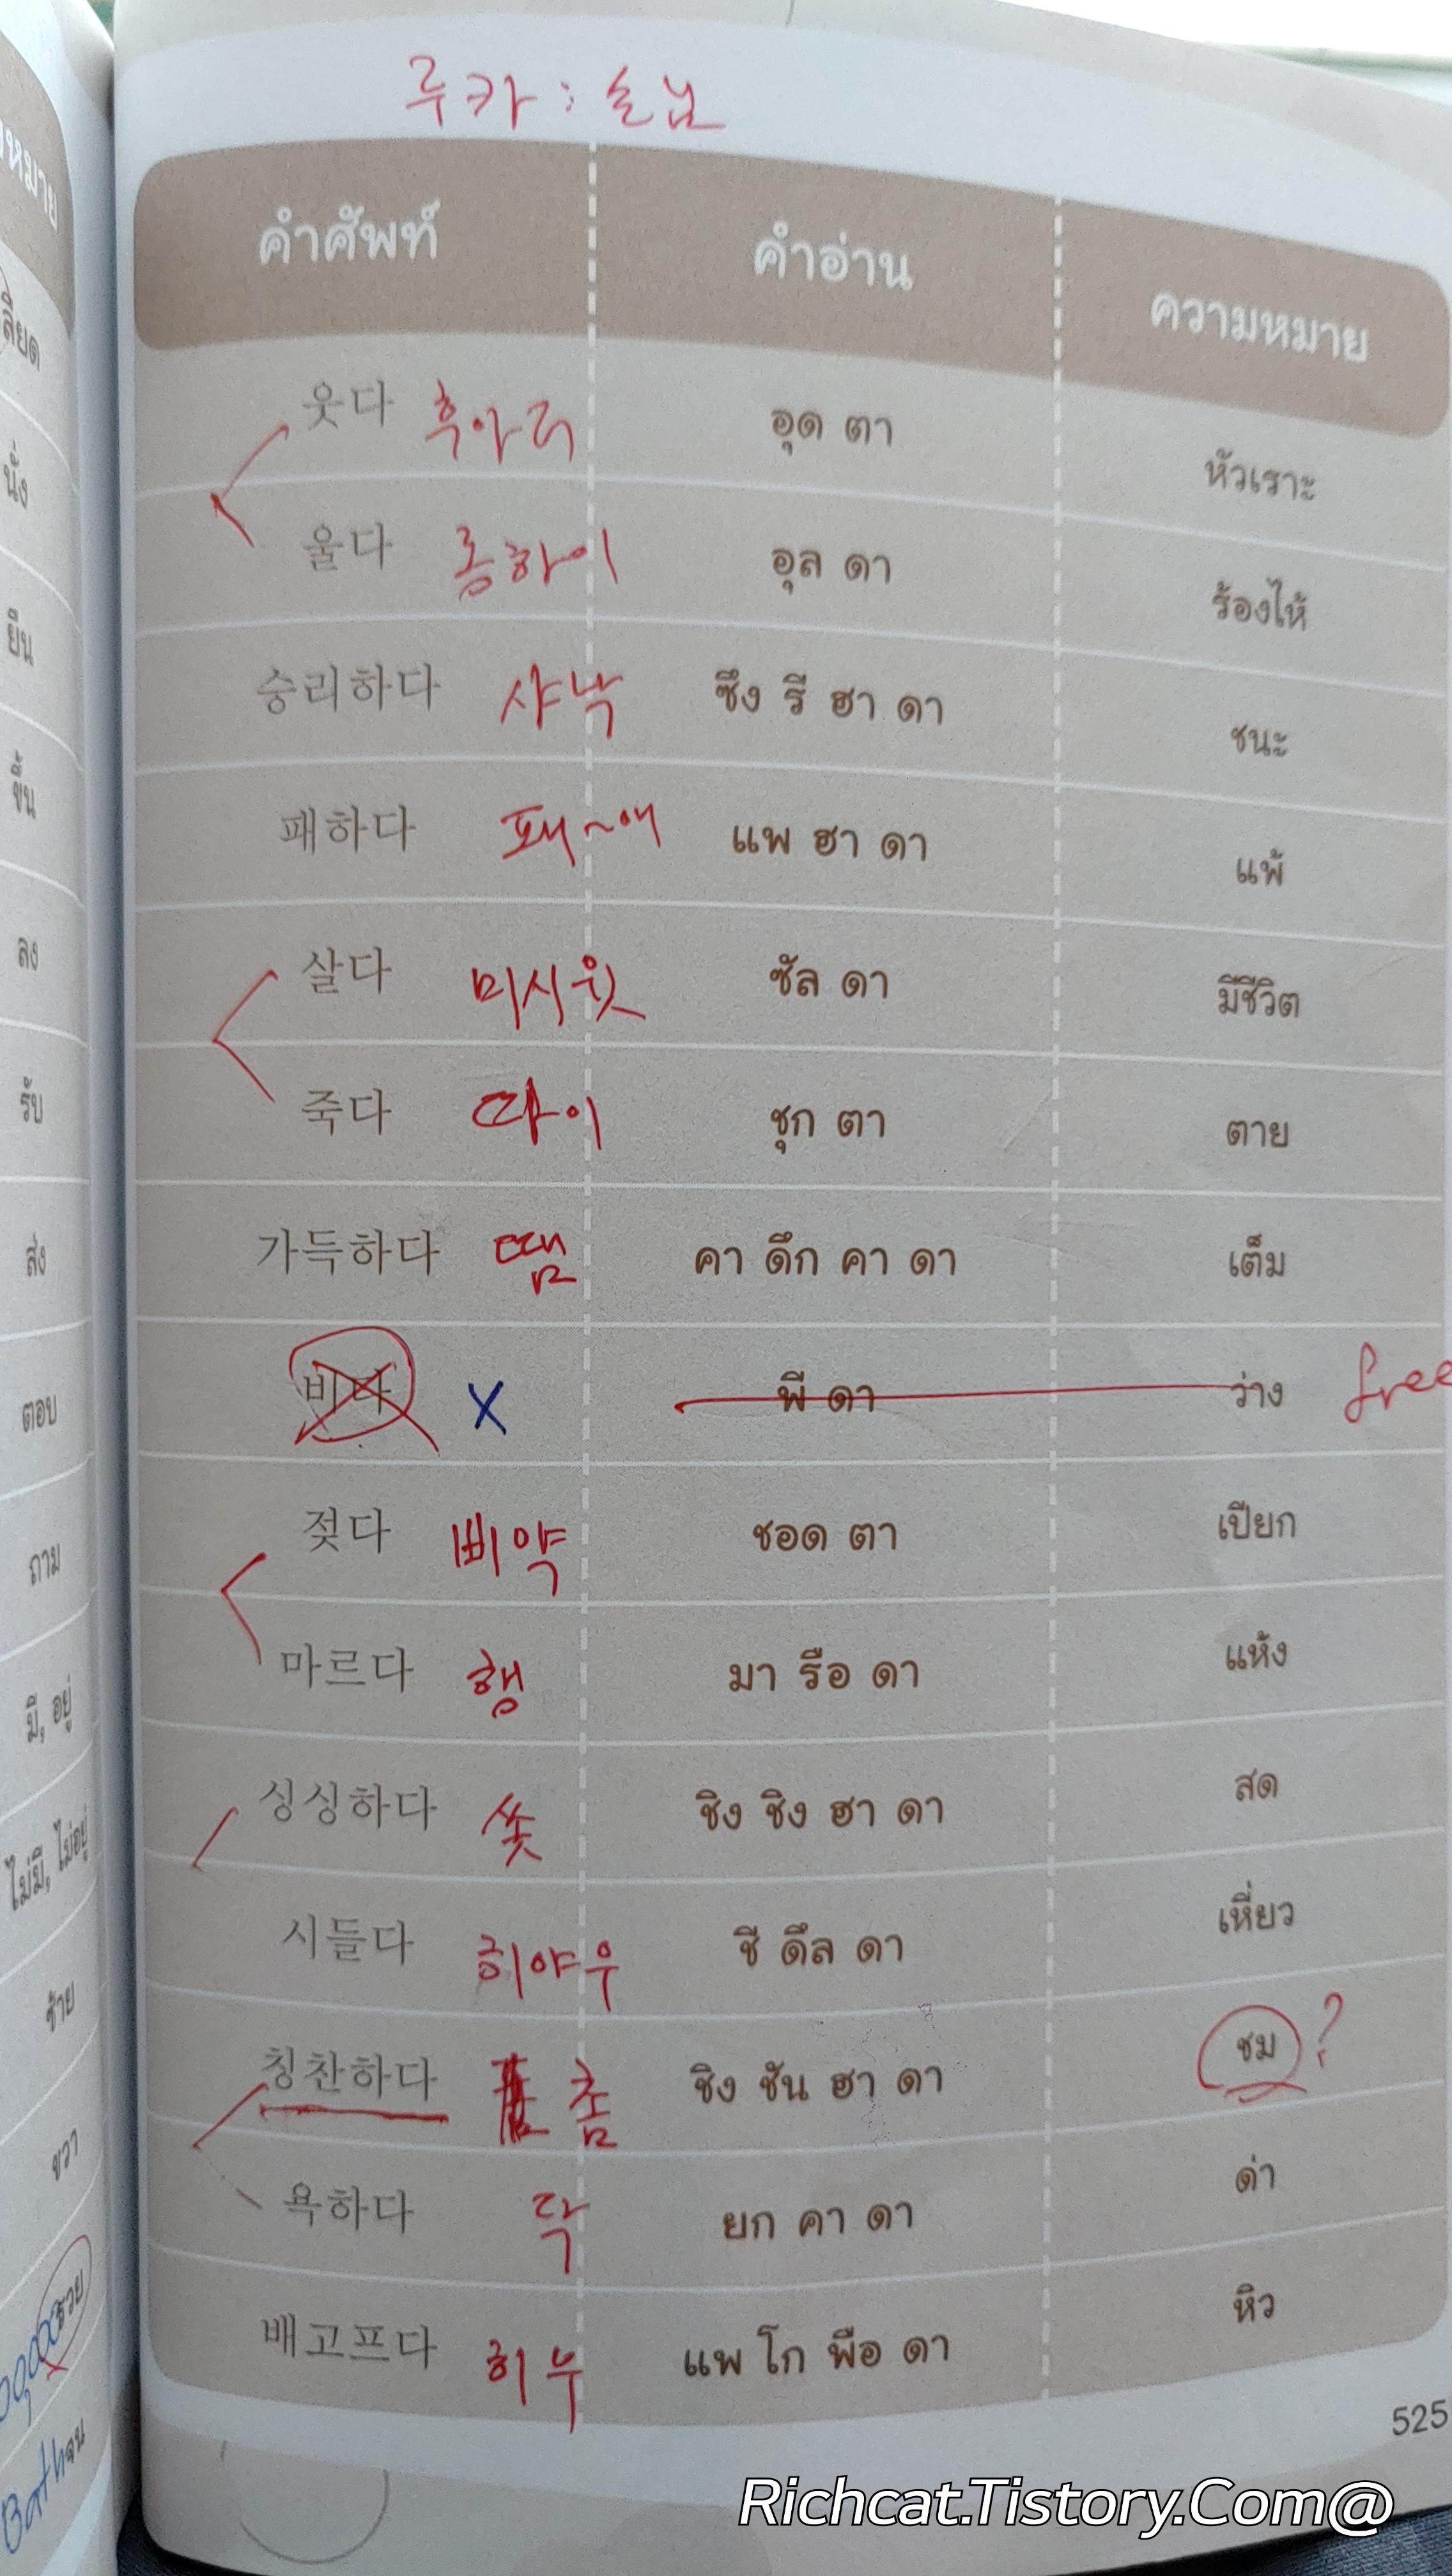 루카 : 손님
คำศัพท์ คำอ่าน ความหมาย
웃다 후아러 อุด ตา หัวเราะ
울다 롱하이 อุล ดา ร้องไห้
승리하다 샤낙 ซึง รี ฮา ดา ชนะ
패하다 패~애 แพ ฮา ดา แพ้
살다 미시윗 ซัล ดา มีชีวิต
죽다 따이 ชุก ตา ตาย
가득하다 땜 คา ดึก คา ดา เต็ม
비다 X พี ดา ว่าง free
젖다 삐약 ชอด ตา เปียก
마르다 행 มา รือ ดา แห้ง
싱싱하다 쏫 ชิง ชิง ฮา ดา สด
시들다 히야우 ชี ดึล ดา เหี่ยว
칭찬하다 촘 ชิง ชัน ฮา ดา ชม ?
욕하다 닥 ยก คา ดา ด่า
배고프다 히우 แพ โก พือ ดา หิว
525
นั่ง
ยืน
ขึ้น
ลง
รับ
ส่ง
ตอบ
ถาม
มี, อยู่
ไม่มี, ไม่อยู่
ซ้าย
ขวา
Richcat.Tistory.Com@